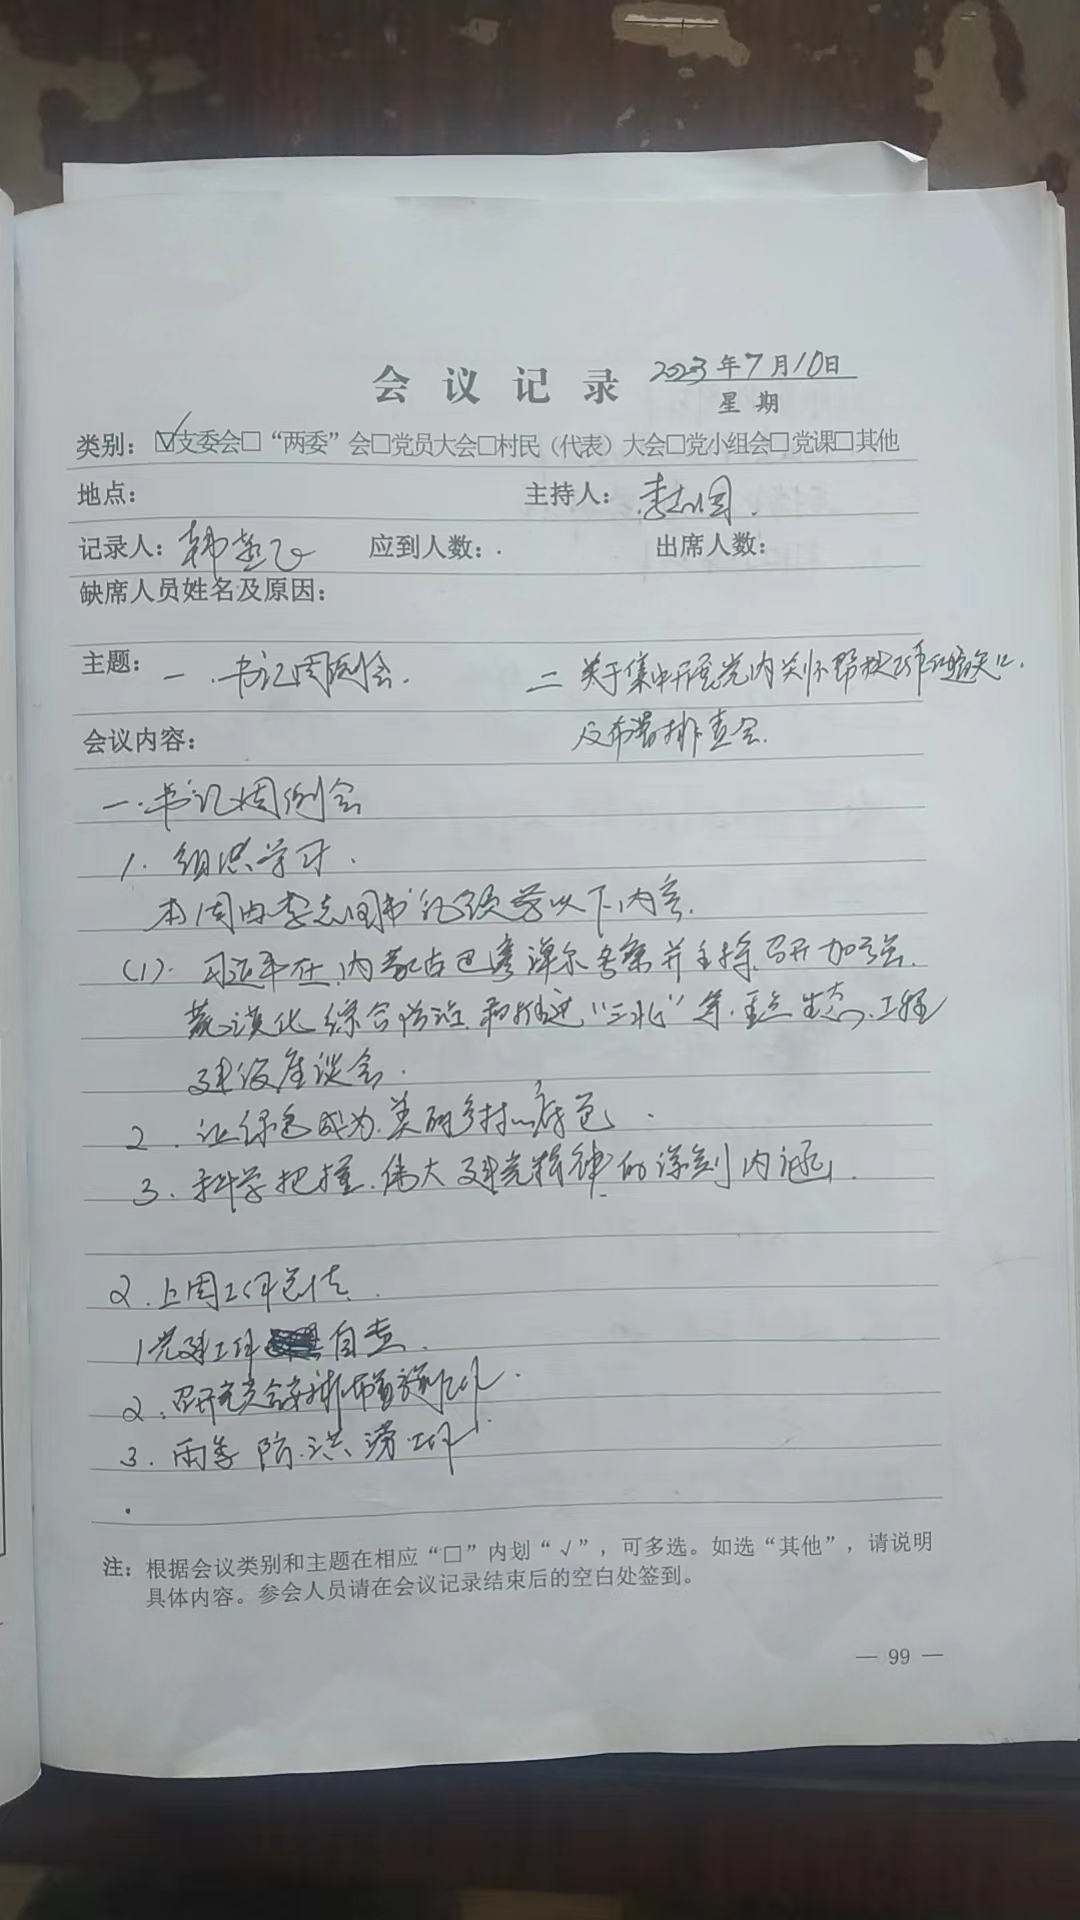 会议记录 2023年7月10日
星期
类别：☑支委会□“两委”会□党员大会□村民（代表）大会□党小组会□党课□其他
地点： 主持人：李志国
记录人：韩 飞 应到人数： 出席人数：
缺席人员姓名及原因：
主题：一.书记周例会. 二 关于集中开展党内关怀帮扶
会议内容： 及布署排查会.
一.书记周例会
1.组织学习.
本周由李志国书记领学以下内容.
(1).习近平在内蒙古巴彦淖尔考察并主持召开加强
荒漠化综合防治和推进“三北”等重点生态工程
建设座谈会.
2.让绿色成为美丽乡村底色.
3.科学把握伟大建党精神的深刻内涵.
2.上周工作总结.
1党建工作自查.
2.召开党员会安排布置
3.雨季防洪涝工作
注：根据会议类别和主题在相应“□”内划“√”，可多选。如选“其他”，请说明
具体内容。参会人员请在会议记录结束后的空白处签到。
— 99 —